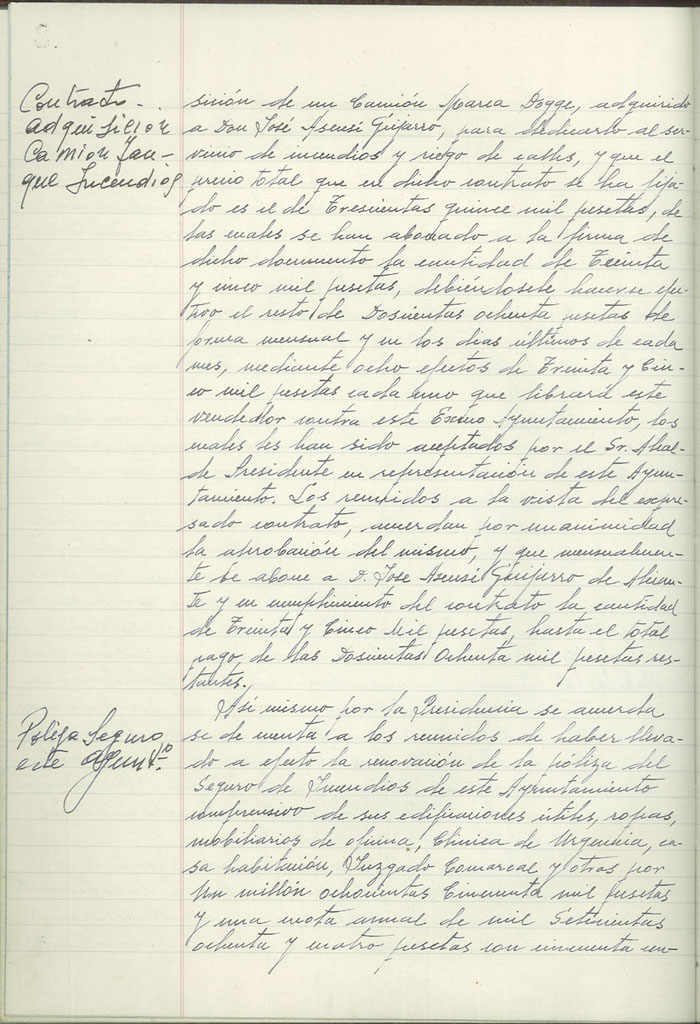 Contrato -
adquisicion
Camion Tan-
que Incendios
sición de un Camión Marca Dogge, adquirido
a Don José Asensi Guijarro, para dedicarlo al ser-
vicio de incendios y riego de calles, y que el
precio total que en dicho contrato se ha fija-
do es el de Trescientas quince mil pesetas, de
las cuales se han abonado a la firma de
dicho documento la cantidad de Treinta
y cinco mil pesetas, debiéndosele hacerse efec-
tivo el resto de Doscientas ochenta pesetas de
forma mensual y en los dias últimos de cada
mes, mediante ocho efectos de Treinta y Cin-
co mil pesetas cada uno que librará este
vendedor contra este Excmo Ayuntamiento, los
cuales les han sido aceptados por el Sr. Alcal-
de Presidente en representación de este Ayun-
tamiento. Los reunidos a la vista del expre-
sado contrato, acuerdan por unanimidad
la aprobación del mismo, y que mensualmen-
te se abone a D. Jose Asensi Guijarro de Alican-
te y en cumplimiento del contrato la cantidad
de Treinta y Cinco Mil pesetas, hasta el total
pago, de las Doscientas Ochenta mil pesetas res-
tantes.
Poliza Seguro
este Ayunto.
Así mismo por la Presidencia se acuerda
se de cuenta a los reunidos de haber lleva-
do a efecto la renovación de la póliza del
Seguro de Incendios de este Ayuntamiento
comprensivo de sus edificaciones útiles, ropas,
mobiliarios de oficina, Clínica de Urgencia, ca-
sa habitación, Juzgado Comarcal y otros por
Un millón ochocientas Cincuenta mil pesetas
y una cuota anual de mil Setecientas
ochenta y cuatro pesetas con cincuenta cen-